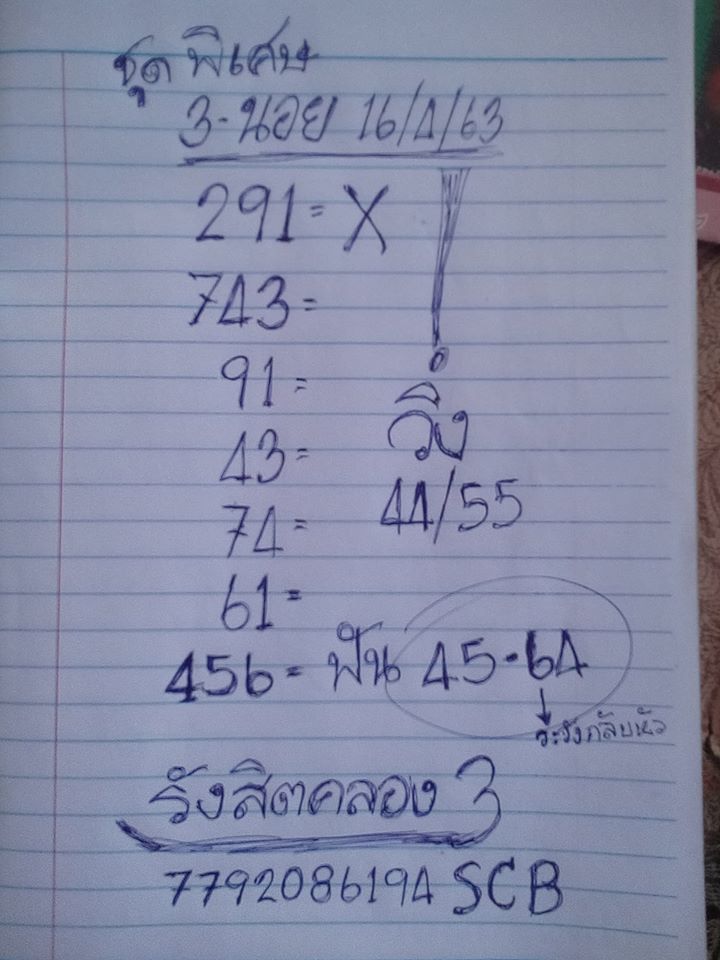 ชุด พิเศษ
3-นอย 16/4/63
291= X
743=
91=
43=
วิ่ง
44/55
74=
61=
456= ฟัน 45-64
ระวังกลับหัว
รังสิตคลอง 3
7792086194 SCB